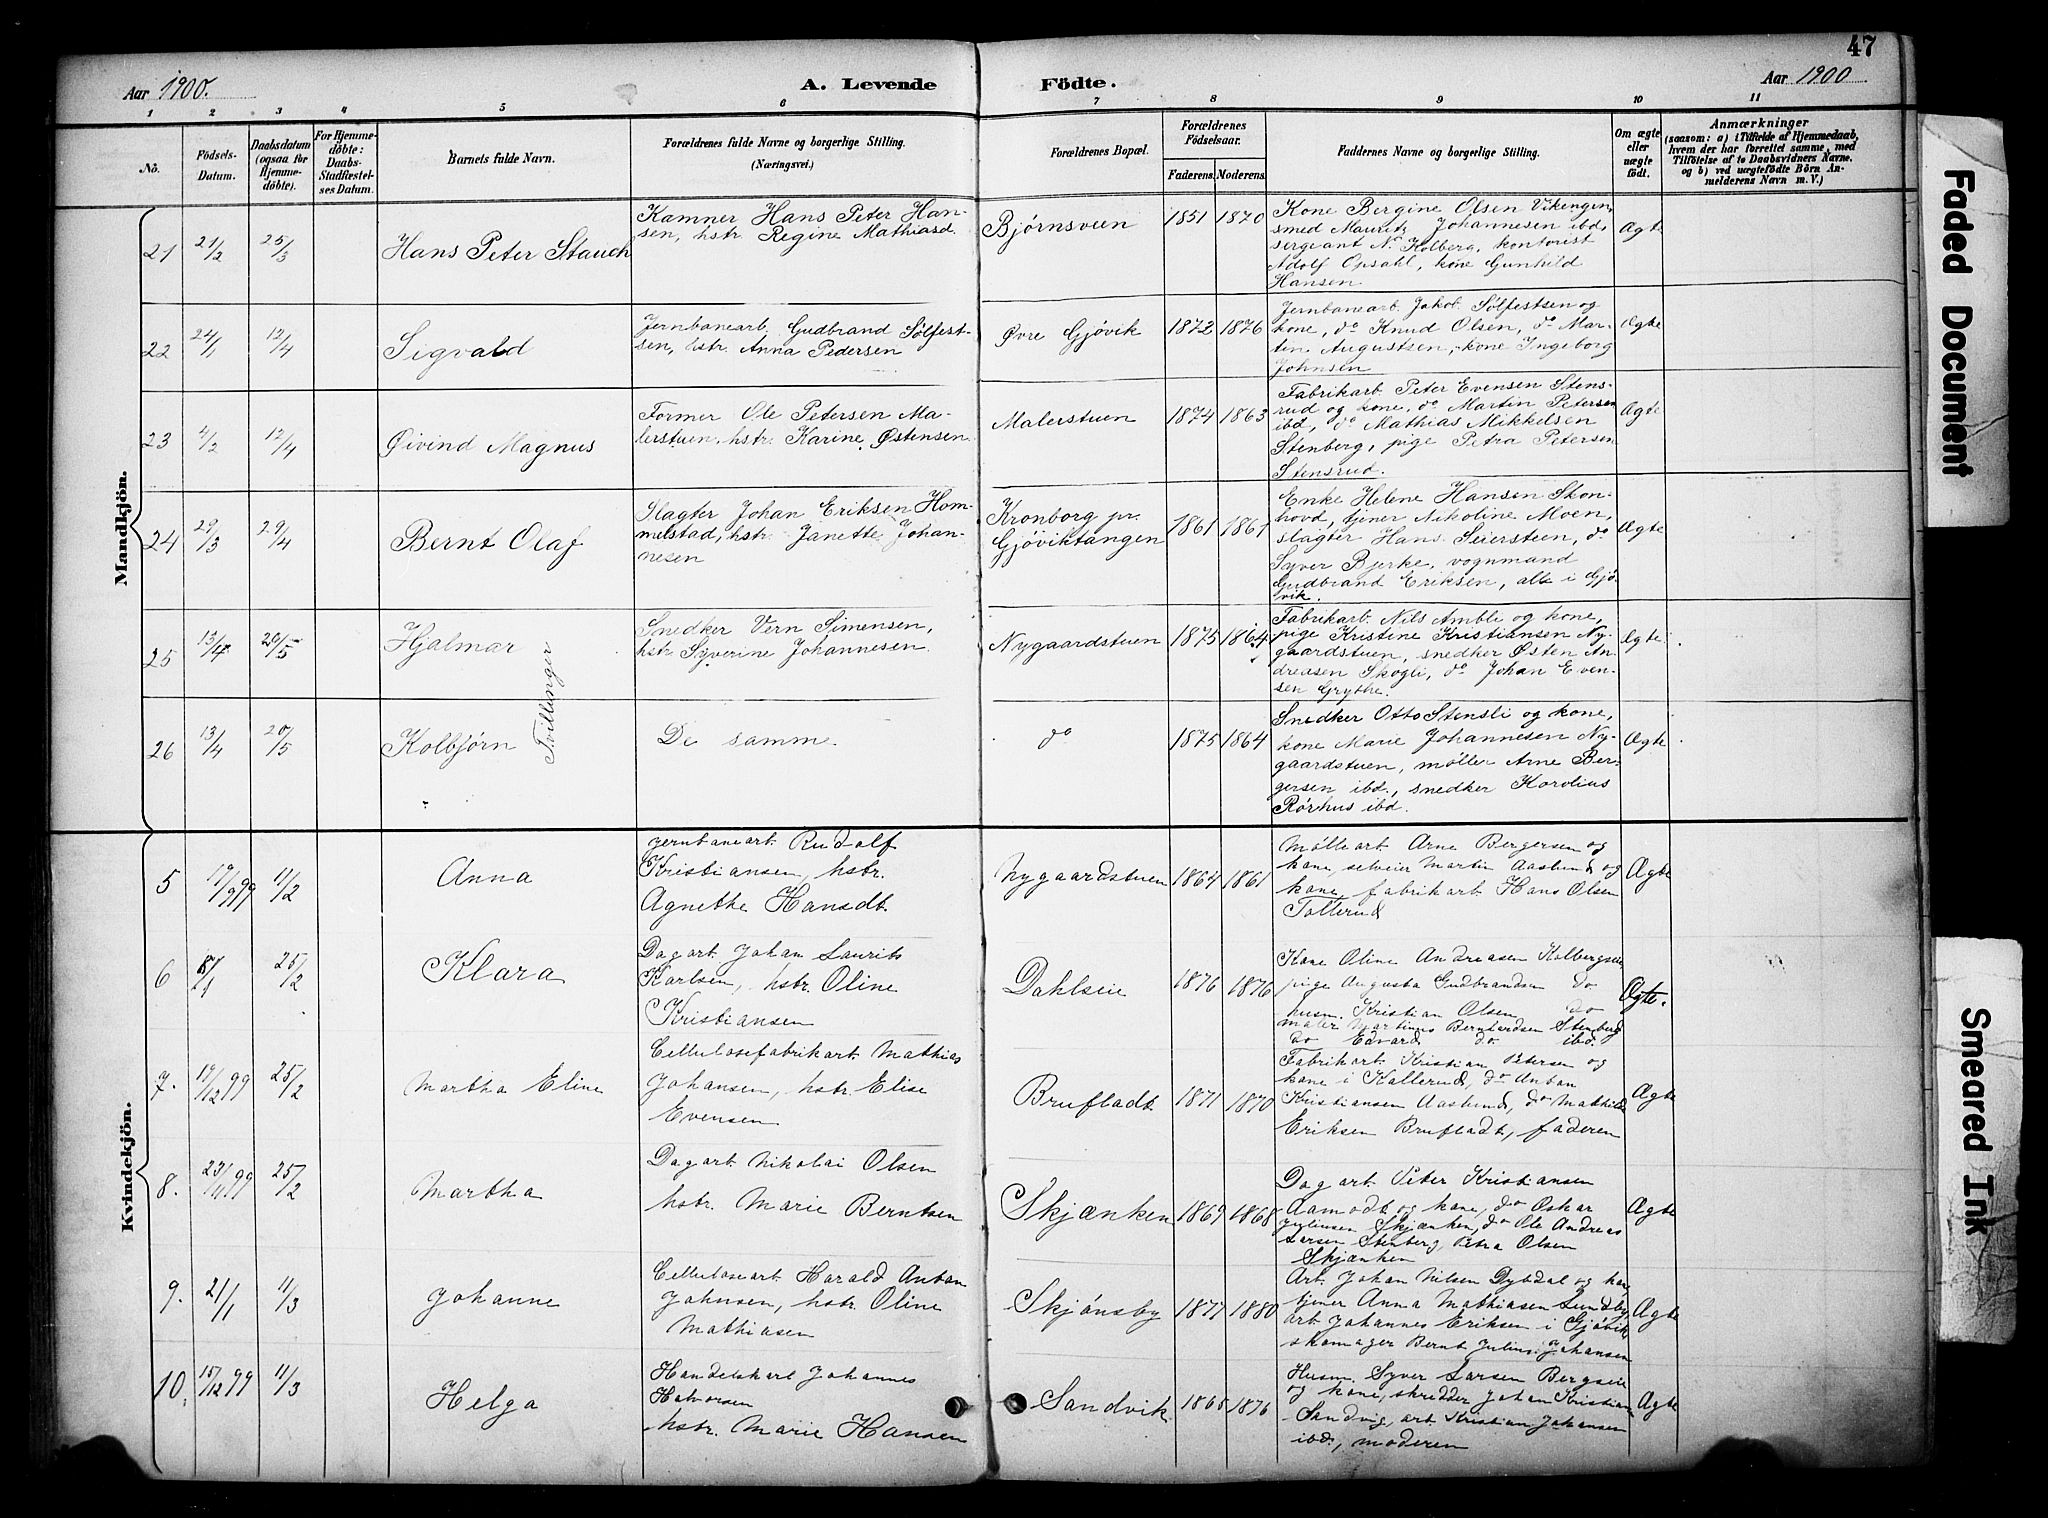 47
Aar 1900.
A. Levende Födte.
Aar 1900
1 2 3 4 5 6 7 8 9 10 11
No.
Födsels-
Datum.
Daabsdatum
(ogsaa for
Hjemme-
døbte).
For Hjemme-
døbte:
Daabs-
Stadfæstel-
ses Datum.
Barnets fulde Navn.
Forældrenes fulde Navne og borgerlige Stilling.
(Næringsvei.)
Forældrenes Bopæl.
Forældrenes
Födselsaar.
Faderens. Moderens.
Faddernes Navne og borgerlige Stilling.
Om ægte
eller
uægte
født.
Anmærkninger
(saasom: a) i Tilfælde af Hjemmedaab,
hvem der har forrettet samme, med
Tilföielse af to Daabsvidners Navne.
og b) ved uægtefödte Börn An-
melderens Navn m. V.)
Mandkjön.
21 21/2 25/3 Hans Peter Stauch
Kamner Hans Peter Han-
sen, hstr. Regine Mathiasd.
Bjørnsveen 1851 1870
Kone Bergine Olsen Vikengen,
smed Mauritz Johannesen ibd,
sergeant N. Kolberg, kontorist
Adolf Opsahl, kone Gunhild
Hansen
Ægte
22 24/1 12/4 Sigvald
Jernbanearb. Gudbrand Sølfest-
sen, hstr. Anna Pedersen
Øvre Gjøvik 1872 1876
Jernbanearb. Jakob Sølfestsen og
kone, do Knud Olsen, do Mar-
tin Augustsen, kone Ingeborg
Johnsen
Ægte
23 4/2 12/4 Øivind Magnus
Former Ole Petersen Ma-
lerstuen, hstr. Karine Østensen
Malerstuen 1874 1863
Fabrikarb. Peter Evensen Stens-
rud og kone, do Martin Petersen
ibd, do Mathias Mikkelsen
Stenberg, pige Petra Petersen
Stensrud.
Ægte
24 29/3 29/4 Bernt Olaf
Slagter Johan Eriksen Hom-
melstad, hstr. Janette Johan-
nesen
Kronborg pr.
Gjøviktangen 1861 1861
Enke Helene Hansen Skon-
hovd, tjener Nikoline Moen,
slagter Hans Seiersteen, do
Syver Bjerke, vognmand
Gudbrand Eriksen, alle i Gjø-
vik.
Ægte
25 13/4 20/5 Hjalmar
Tvillinger
Snedker Vern Simensen,
hstr. Syverine Johannesen
Nygaardstuen 1875 1864
Fabrikarb. Nils Ambli og kone,
pige Kristine Kristiansen Ny-
gaardstuen, snedker Østen An-
dreasen Skogli, do Johan Even-
sen Grythe.
Ægte
26 13/4 20/5 Kolbjørn
De samme.
do 1875 1864
Snedker Otto Stensli og kone,
kone Marie Johannesen Ny-
gaardstuen, møller Arne Ber-
gersen ibd., snedker Karolius
Rørhus ibd.
Ægte
Kvindekjön.
5 17/9 99 11/2 Anna
Jernbanearb. Rudolf
Kristiansen, hstr.
Agnethe Hansdt.
Nygaardstuen 1864 1861
Møllearb. Arne Bergersen og
kone, selveier Martin Aaslund og
kone, fabrikarb. Hans Olsen
Tollerud
Ægte
6 8/1 25/2 Klara
Dagarb. Johan Laurits
Karlsen, hstr. Oline
Kristiansen
Dahlseie 1876 1876
Kone Oline Andreasen Kolbergseie
pige Augusta Gudbrandsen do
husm. Kristian Olsen do
maler Martinus Bernhardsen Stenberg
do Edvard do ibd.
Ægte.
7. 19/12 99 25/2 Martha Eline
Cellulosefabrikarb. Mathias
Johansen, hstr. Elise
Evensen
Brufladt 1871 1870
Fabrikarb. Kristian Petersen og
kone i Kallerud, do Anton
Kristiansen Aaslund, do Mathilde
Eriksen Brufladt, faderen
Ægte
8. 23/11 99 25/2 Martha
Dagarb. Nikolai Olsen
hstr. Marie Berntsen
Skjænken 1869 1868
Dagarb. Peter Kristiansen
Aamodt og kone, do Oskar
Juliussen Skjænken, do Ole Andreas
Larsen Stenberg, Petra Olsen
Skjænken
Ægte
9. 21/1 11/3 Johanne
Cellulosearb. Harald Anton
Johnsen, hstr. Oline
Mathiasen
Skjønsby 1877 1880
Arb. Johan Nilsen Dybdal og kone
tjener Anna Mathiasen Lundby,
arb. Johannes Eriksen i Gjøvik
skomager Bernt Julius Johansen
Ægte
10. 15/12 99 11/3 Helga
Handelskarl Johannes
Halvorsen
hstr. Marie Hansen
Sandvik 1865 1876
Husm. Syver Larsen Bergseie
og kone, skredder Johan Kristian
Sandvig, arb. Kristian Johansen
ibd, moderen
Ægte
Faded Document
Smeared Ink